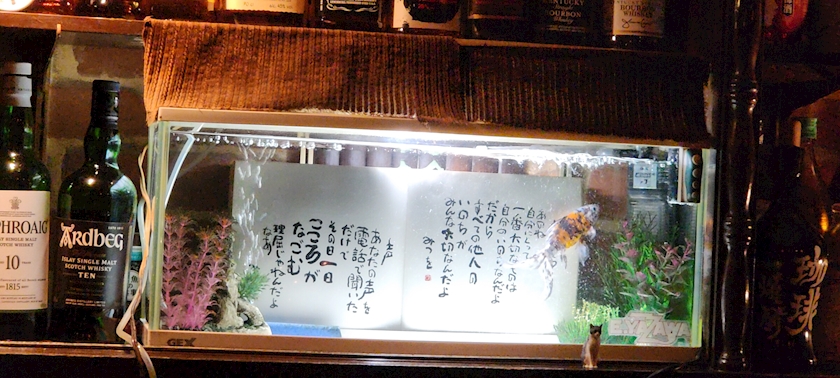 KENTUCKY
BOURBON
PHROAIG
10
1815
ARDBEG
ISLAY SINGLE MALT
SCOTCH WHISKY
TEN
あのね
自分にとって
一番大切なものは
自分のいのちなんだよ
だから
すべての他人の
いのちが
みんな大切なんだよ
みつを
声
あなたの声を
電話で聞いた
だけで
その日一日
こころが
なごむ
理屈じゃねんだよ
なあ
GEX